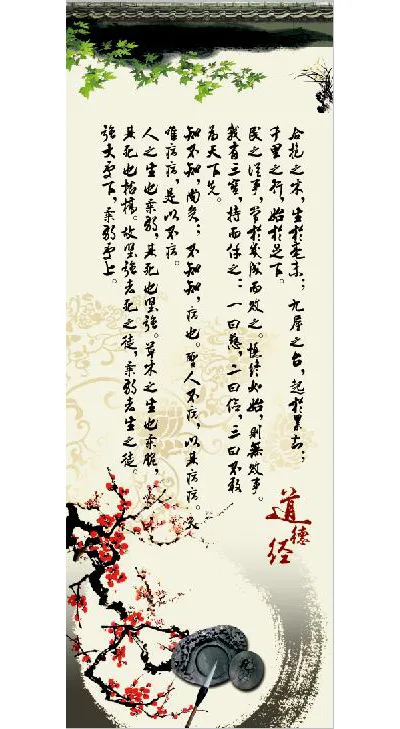 合抱之木，生於毫末；九层之台，起於累土；
千里之行，始於足下。
民之从事，常於幾成而败之。慎终如始，则無败事。
我有三宝，持而保之：一曰慈，二曰俭，三曰不敢
为天下先。
知不知，尚矣；不知知，病也。聖人不病，以其病病。夫
唯病病，是以不病。
人之生也柔弱，其死也坚强。草木之生也柔脆，
其死也枯槁。故坚强者死之徒，柔弱者生之徒。
强大处下，柔弱处上。
道德经